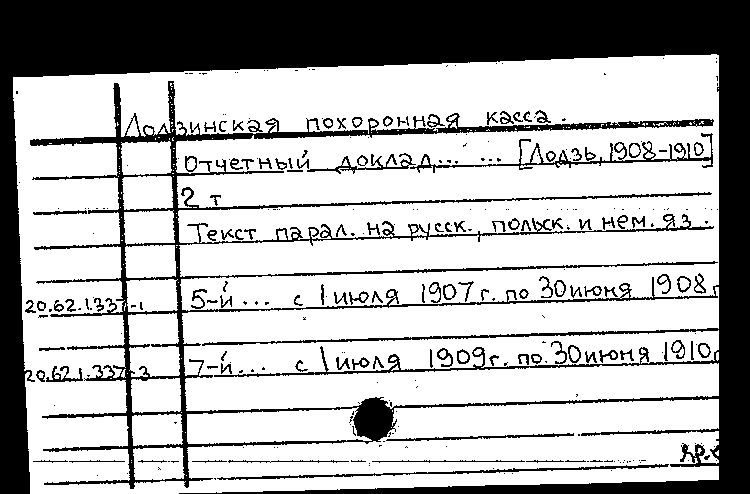 Лодзинская похоронная касса.
Отчетный доклад... ... [Лодзь, 1908-1910]
2 т
Текст парал. на русск., польск. и нем. яз.
20.62.1.337-1 5-й... с 1 июля 1907 г. по 30 июня 1908 г
20.62.1.337-3 7-й... с 1 июля 1909 г. по 30 июня 1910 г